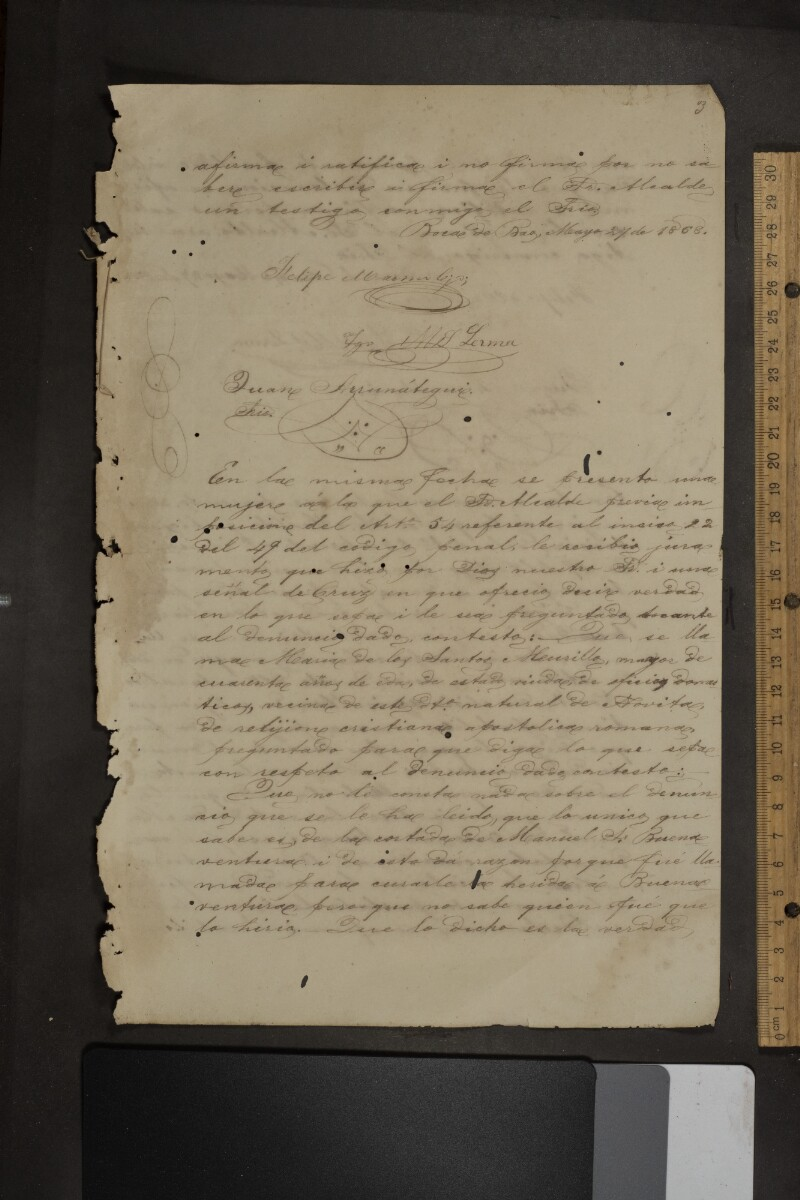 3
afirma i ratifica i no firma por no sa
ber escribir i firma el Sr. Alcalde
un testigo conmigo el Srio
Bocas de Bao, Mayo 27 de 1868.
Felipe
Tgo Lerma
Juan Arrunátegui.
Srio.
En la misma fecha se presento una
mujer á la que el Sr. Alcalde previa im
posicion del Art.º 54 referente al inciso 22
del 49 del codigo penal le recibio jura
mento que hizo por Dios nuestro Sr. i una
señal de Cruz en que ofrecio desir verdad
en lo que sepa i le sea preguntado, tocante
al denuncio dado, contesto: Que se lla
ma Maria de los Santos Murillo, mayor de
cuarenta años de eda, de estado viuda, de oficios domes
ticos, vecina de este Dto. natural de
de relijion cristiana apostolica romana.
preguntado para que diga lo que sepa
con respeto al denuncio dado contesto:
Que no le consta nada sobre el denun
cio que se le ha leido, que lo unico que
sabe es, de la cortada de Manuel S. Buena
ventura i de esto dá razon porque fué lla
mada para curarle la herida á Buena
ventura pero que no sabe quien fué que
lo hirio. Que lo dicho es la verdad,